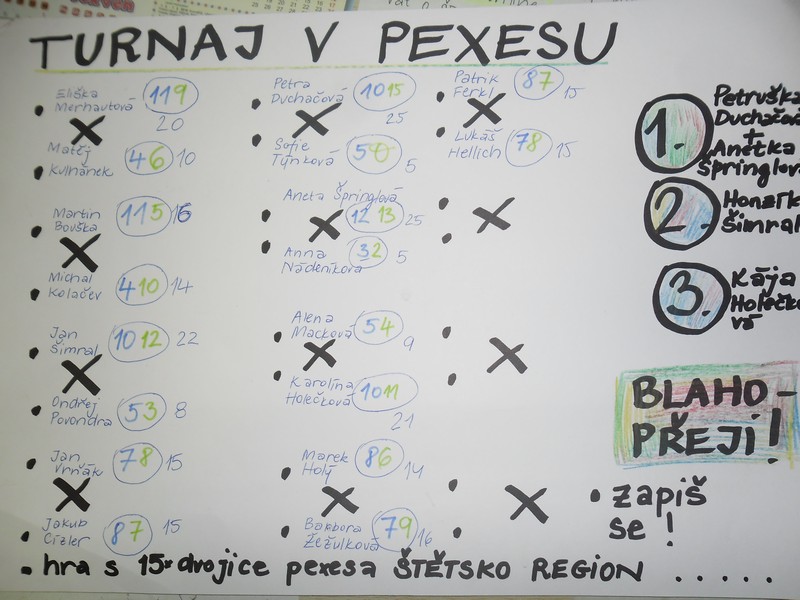 TURNAJ V PEXESU
Eliška
Merhautová 11 9
20
Matěj
Kulhánek 4 6 10
Martin
Bouška 11 5 16
Michal
Kolačev 4 10 14
Jan
Šimral 10 12 22
Ondřej
Povondra 5 3 8
Jan
Vrňák 7 8 15
Jakub
Cizler 8 7 15
Petra
Duchačová 10 15
25
Sofie
Týnková 5 0 5
Aneta Špringlová
12 13 25
Anna
Nádeníková 3 2 5
Alena
Macková 5 4 9
Karolína
Holečková 10 11
21
Marek
Holý 8 6 14
Barbora
Žežulková 7 9 16
Patrik
Ferkl 8 7 15
Lukáš
Hellich 7 8 15
1. Petruška
Duchačov
+
Anetka
Špringlov
2. Honzík
Šimral
3. Kája
Holečko
vá
BLAHO-
PŘEJI!
• zapiš
se!
• hra s 15× dvojice pexesa ŠTĚTSKO REGION . . . . .